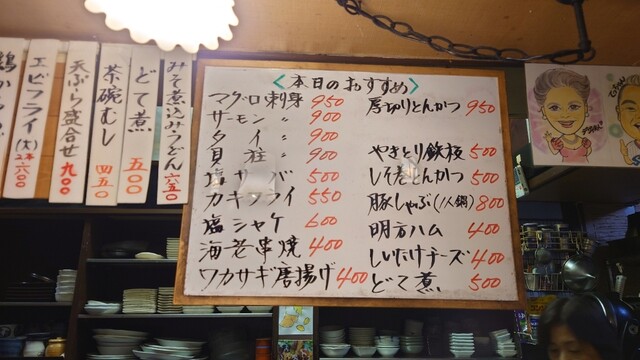 〈本日のおすすめ〉
マグロ刺身 950
サーモン 〃 900
タイ 〃 900
貝柱 〃 900
塩サバ 500
カキフライ 550
塩シャケ 600
海老串焼 400
ワカサギ唐揚げ 400
厚切りとんかつ 950
やきとり鉄板 500
しそ巻とんかつ 500
豚しゃぶ(1人鍋) 800
明方ハム 400
しいたけチーズ 400
どて煮 500
みそ煮込みうどん 650
どて煮 500
茶碗むし 450
天ぷら盛合せ 900
エビフライ(大)2本 600